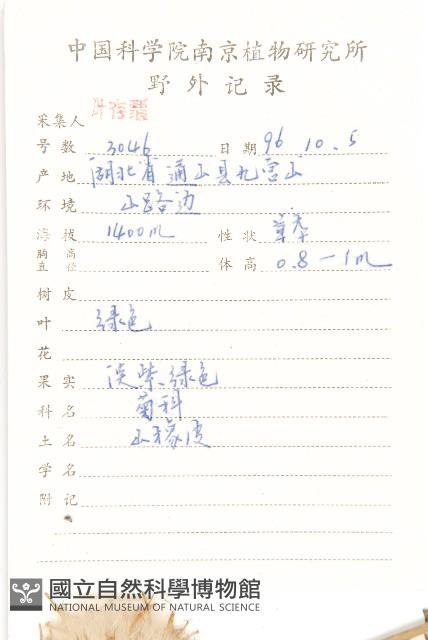 中国科学院南京植物研究所
野外记录
采集人
号数 3046 日期 96.10.5
产地 湖北省通山县九宫山
环境 山路边
海拔 1400m 性状 草本
胸高直径 体高 0.8—1m
树皮
叶 绿色
花
果实 淡紫绿色
科名 菊科
土名
学名
附记
國立自然科學博物館
NATIONAL MUSEUM OF NATURAL SCIENCE